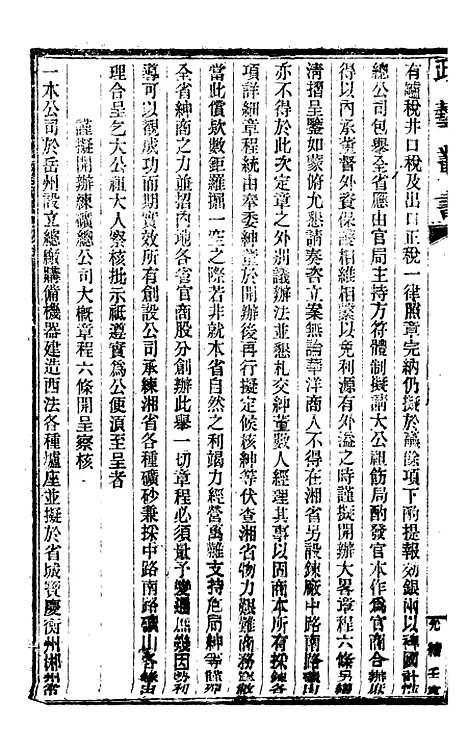 有爐稅井口稅及出口正稅一律照章完納仍擬於議餘項下酌提報効銀兩以裨國計惟
總公司包舉全省應由官局主持方符體制擬請大公祖飭局酌發官本作為官商合辦
得以內承憲督外資保護相維相繫以免利源有外溢之時謹擬開辦大畧章程六條另繕
清摺呈鑒如蒙俯允懇請奏咨立案無論華洋商人不得在湘省另設鍊廠中路南路
亦不得於此次定章之外別議辦法並懇札交紳董數人經理其事以固商本所有採鍊各
項詳細章程統由奉委紳董於開辦後再行擬定候核紳等伏查湘省物力艱難商務
當此償欵數鉅羅掘一空之際若非就本省自然之利竭力經營萬難支持危局惟
全省紳商之力並招內地各省官商股分創辦此舉一切章程必須量予變通無幾因勢利
導可以觀成功而期實效所有創設公司承練湘省各種礦砂兼採中路南路礦山各緣由
理合呈乞大公祖大人察核批示祗遵實為公便須至呈者
謹擬開辦練礦總公司大概章程六條開呈察核
一本公司於岳州設立總廠購備機器建造西法各種爐座並擬於省城寶慶衡州郴州常
政藝叢書
光緒壬寅